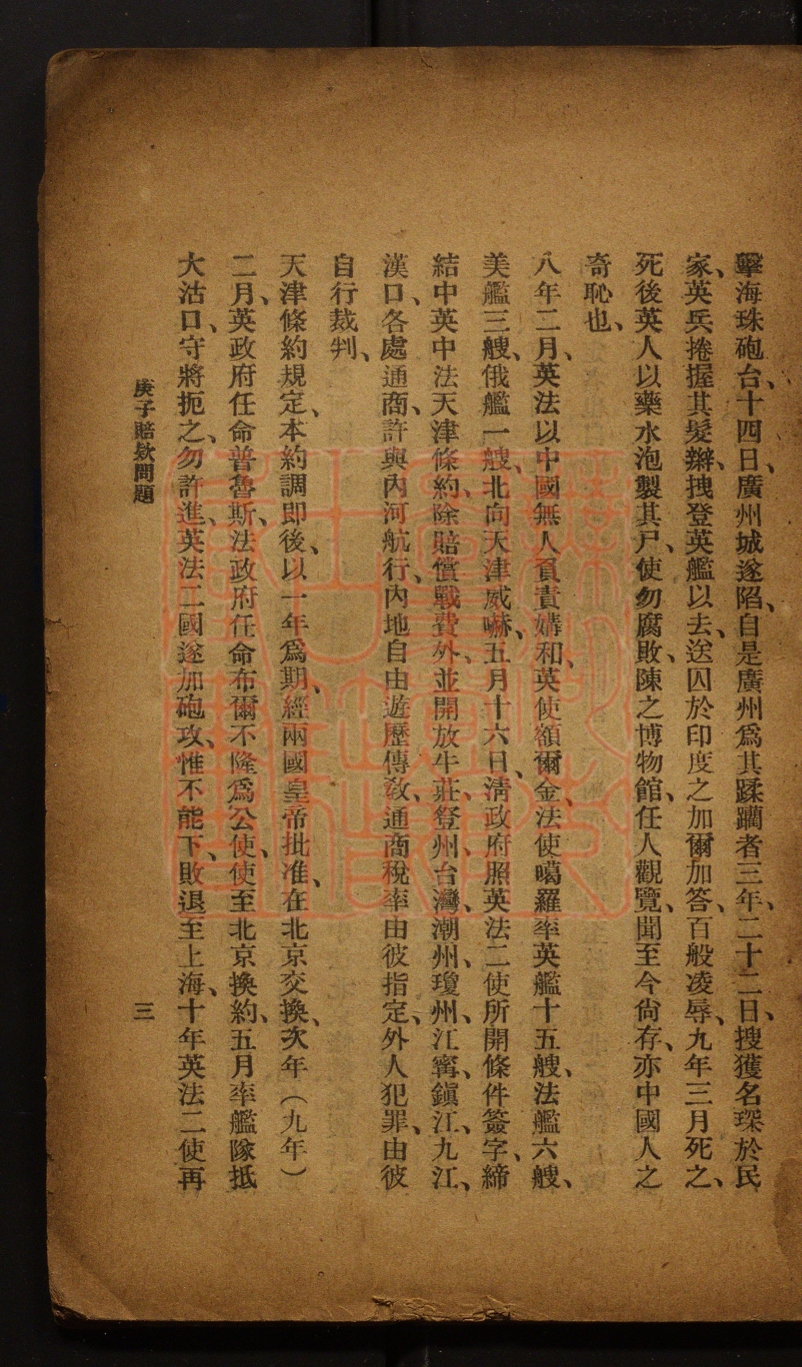 擊海珠砲台、十四日、廣州城遂陷、自是廣州爲其蹂躪者三年、二十二日、搜獲名琛於民
家、英兵捲握其髮辮、拽登英艦以去、送囚於印度之加爾加答、百般凌辱、九年三月死之、
死後英人以藥水泡製其尸、使勿腐敗、陳之博物館、任人觀覽、聞至今尙存、亦中國人之
奇恥也、
八年二月、英法以中國無人負責媾和、英使額爾金、法使噶羅率英艦十五艘、法艦六艘、
美艦三艘、俄艦一艘、北向天津威嚇、五月十六日、淸政府照英法二使所開條件簽字、締
結中英中法天津條約、除賠償戰費外、並開放牛莊、登州、台灣、潮州、瓊州、江寗、鎭江、九江、
漢口、各處通商、許與內河航行、內地自由遊歷傳敎、通商稅率由彼指定、外人犯罪、由彼
自行裁判、
天津條約規定、本約調卽後、以一年爲期、經兩國皇帝批准、在北京交換、次年（九年）
二月、英政府任命普魯斯、法政府任命布爾不隆爲公使、使至北京換約、五月率艦隊抵
大沽口、守將扼之、勿許進、英法二國遂加砲攻、惟不能下、敗退至上海、十年英法二使再
庚子賠欵問題
三